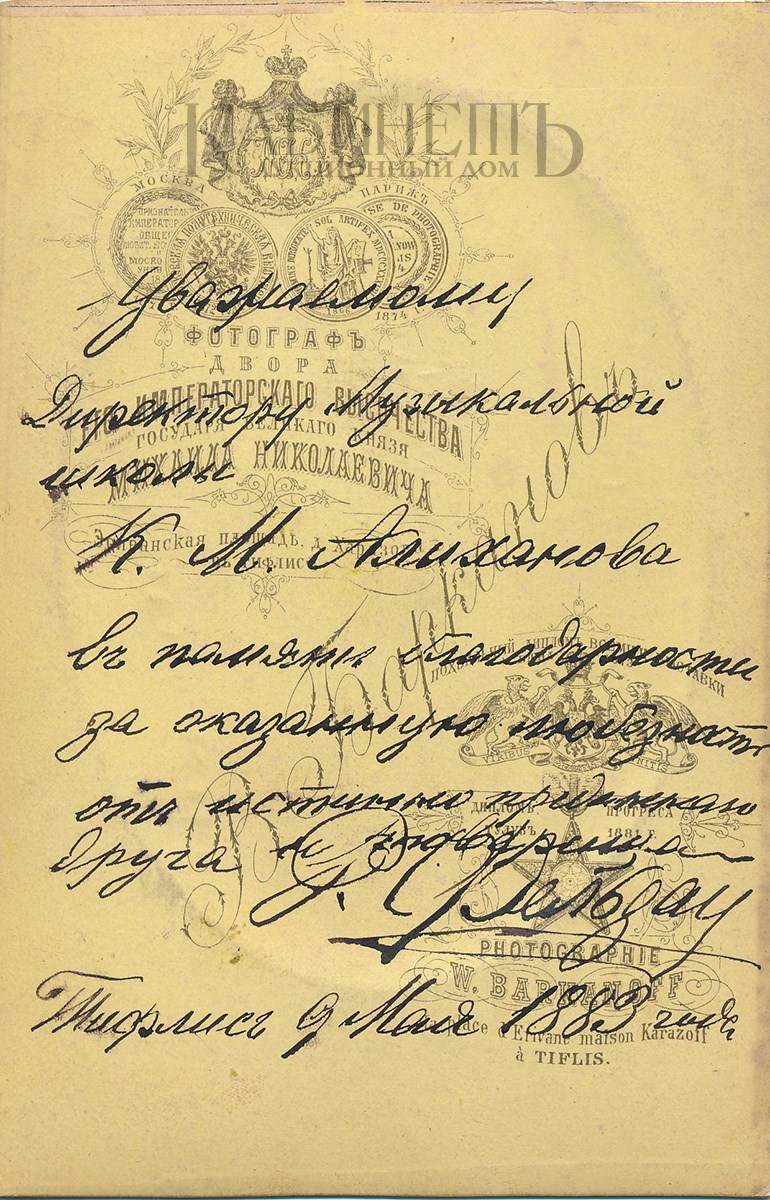 КАБИНЕТЪ
АУКЦИОННЫЙ ДОМ
МОСКВА
ПАРИЖЪ
SOL ARTIFEX
SE DE PHOTOGRAPHIE
1874
Уважаемому
ФОТОГРАФЪ
ДВОРА
ИМПЕРАТОРСКАГО ВЫСОЧЕСТВА
Директору Музыкальной
ГОСУДАРЯ ВЕЛИКАГО КНЯЗЯ
школы
МИХАИЛА НИКОЛАЕВИЧА
Эриванская площадь, д.
К. М. Алиханова
Тифлис
В. Барканов
въ память благодарности
за оказанную любезность
ДИПЛОМЪ ПРОГРЕСА
отъ истинно преданнаго
1881 г.
друга и товарища
PHOTOGRAPHIE
W. BARKANOFF
Тифлисъ 9 Мая 1883 года
Place d'Erivant maison Karazoff
à TIFLIS.